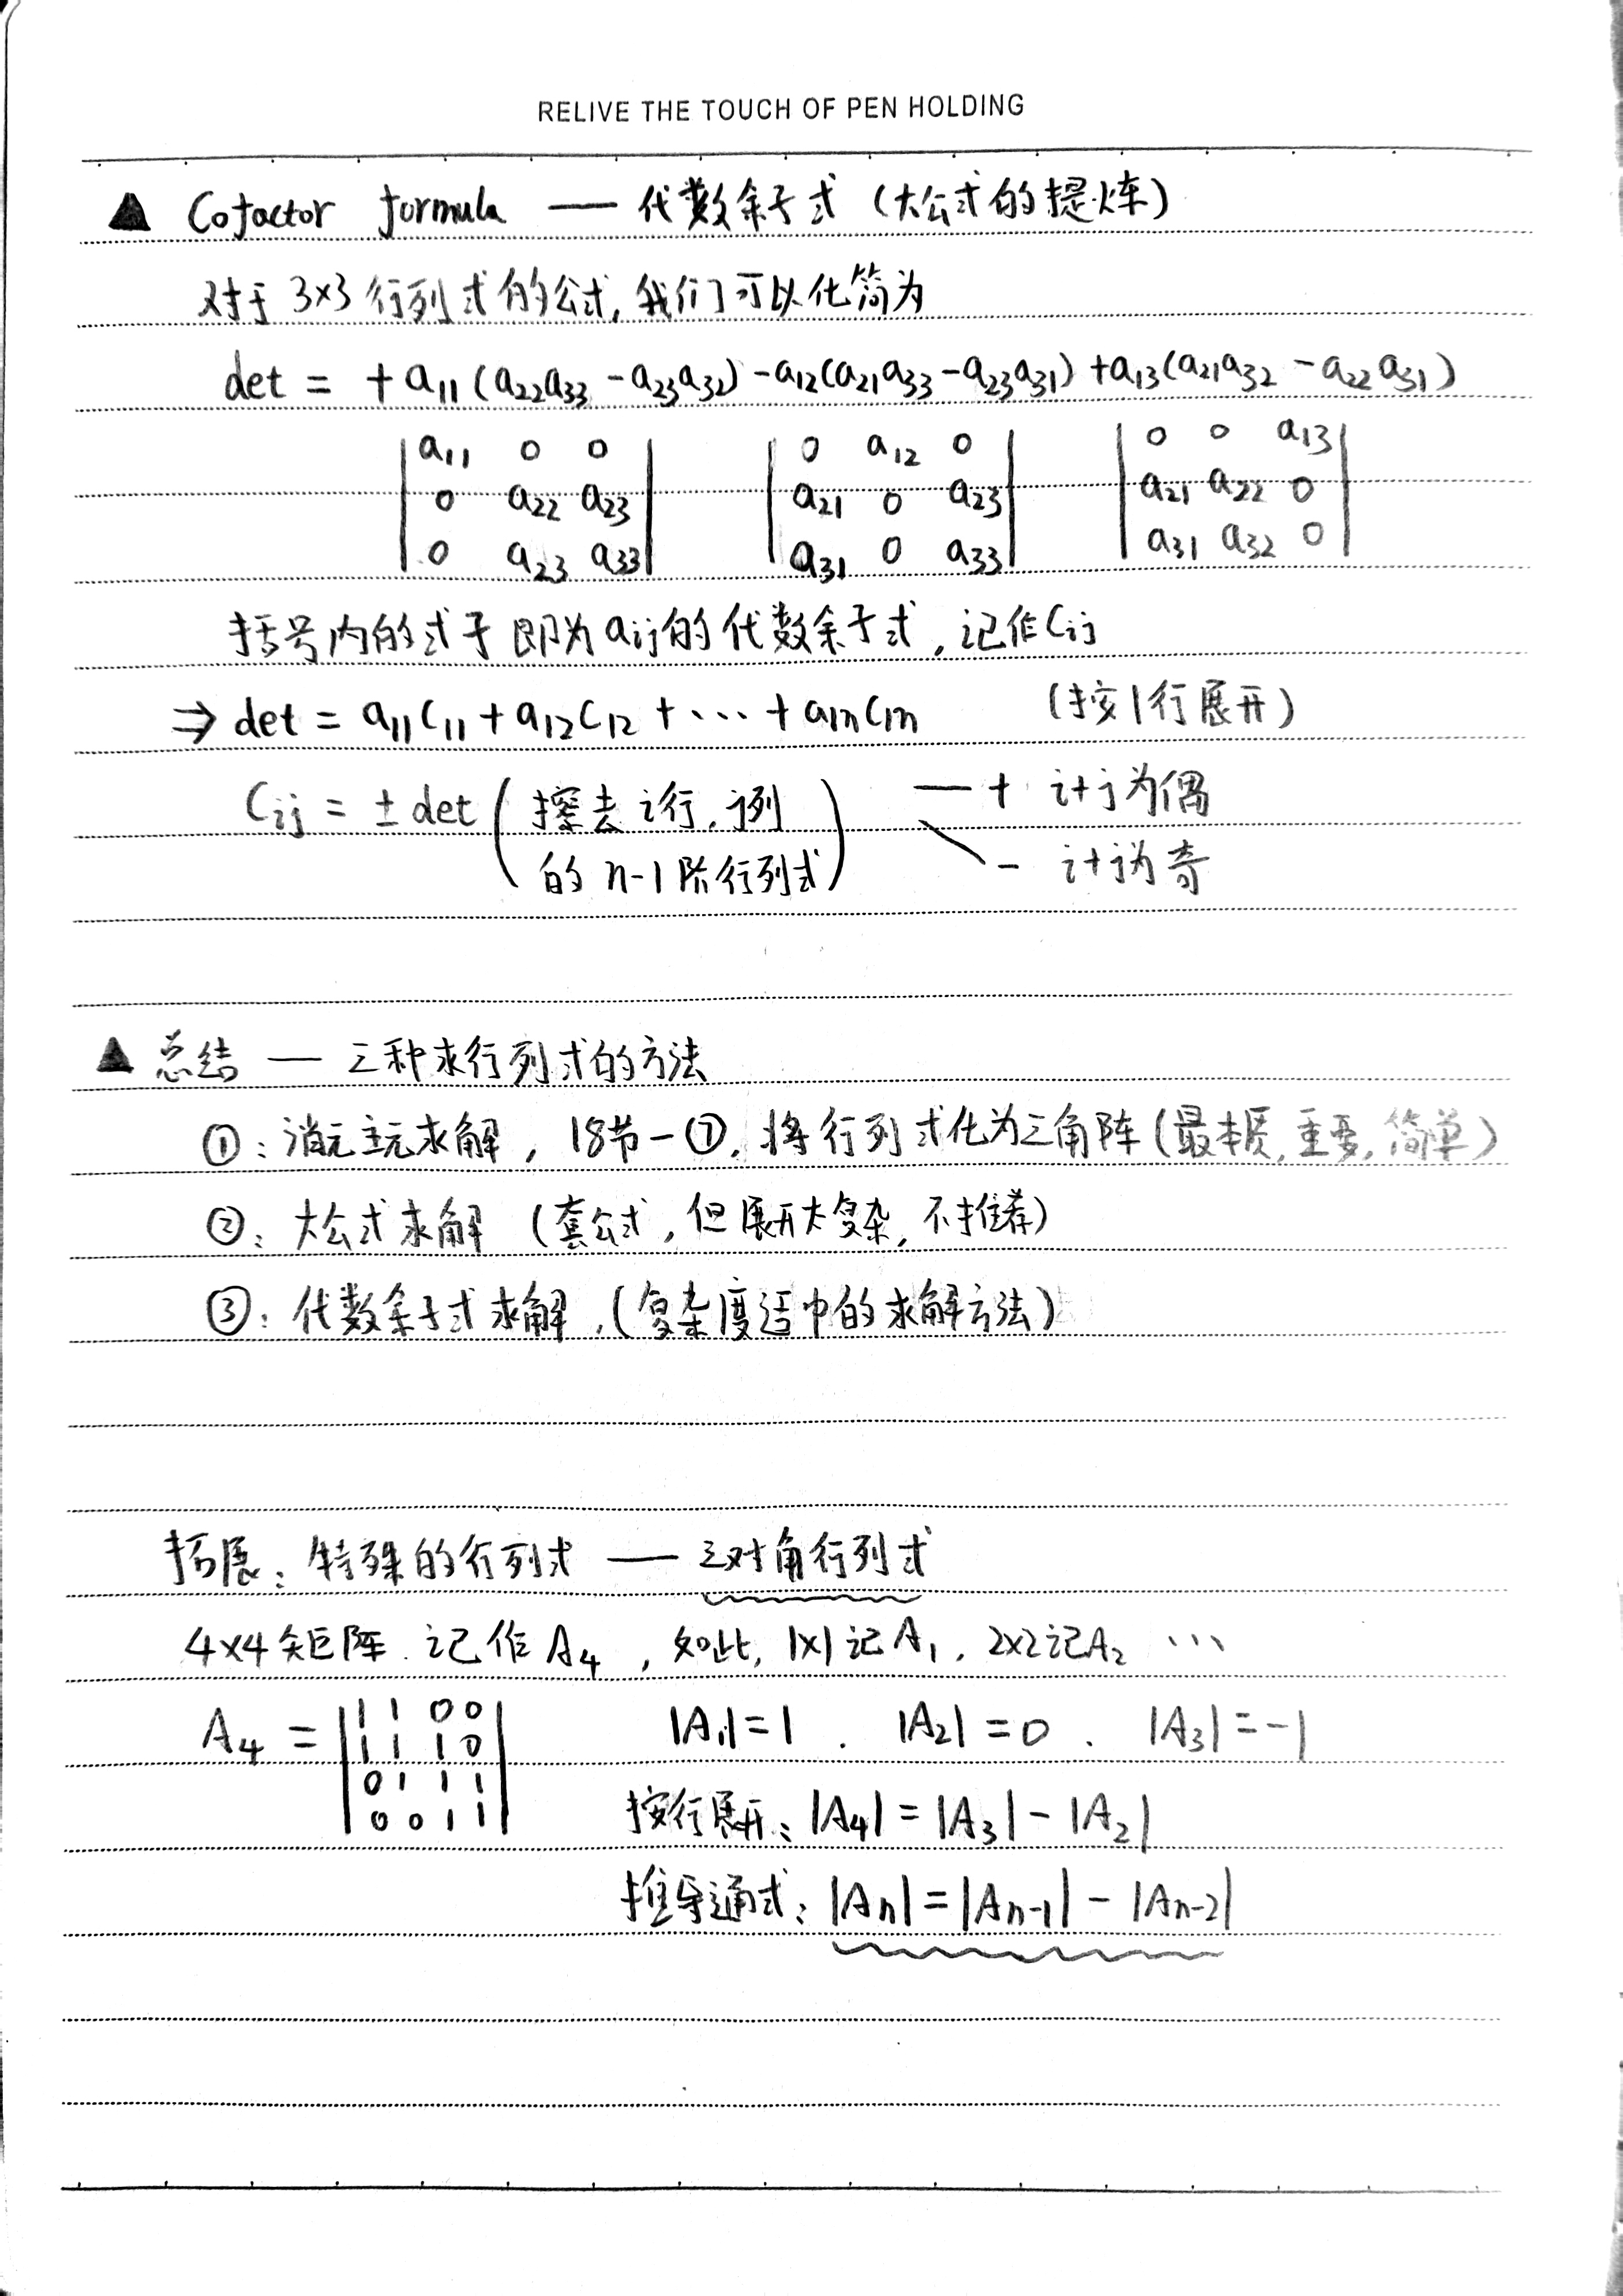 RELIVE THE TOUCH OF PEN HOLDING
▲ Cofactor formula — 代数余子式 (大公式的提炼)
对于 3×3 行列式的公式, 我们可以化简为
det = + a₁₁ (a₂₂a₃₃ - a₂₃a₃₂) - a₁₂(a₂₁a₃₃ - a₂₃a₃₁) + a₁₃(a₂₁a₃₂ - a₂₂a₃₁)
|a₁₁ 0 0| |0 a₁₂ 0| |0 0 a₁₃|
|0 a₂₂ a₂₃| |a₂₁ 0 a₂₃| |a₂₁ a₂₂ 0|
|0 a₂₃ a₃₃| |a₃₁ 0 a₃₃| |a₃₁ a₃₂ 0|
括号内的式子即为aij的代数余子式, 记作Cij
⇒ det = a₁₁C₁₁ + a₁₂C₁₂ + ··· + a₁ₙC₁ₙ (按1行展开)
Cij = ± det (擦去 i行, j列 — + i+j为偶
的 n-1 阶行列式) \ - i+j为奇
▲ 总结 — 三种求行列式的方法
①: 消元主元求解, 18节-⑦, 将行列式化为三角阵 (最本质, 重要, 简单)
②: 大公式求解 (套公式, 但展开太复杂, 不推荐)
③: 代数余子式求解, (复杂度适中的求解方法)
拓展: 特殊的行列式 — 三对角行列式
4×4 矩阵. 记作 A₄, 如此, 1×1 记 A₁, 2×2 记 A₂ ···
A₄ = |1 1 0 0| |A₁|=1 . |A₂|=0 . |A₃|=-1
|1 1 1 0|
|0 1 1 1|
|0 0 1 1| 按行展开: |A₄| = |A₃| - |A₂|
推导通式: |Aₙ| = |Aₙ₋₁| - |Aₙ₋₂|